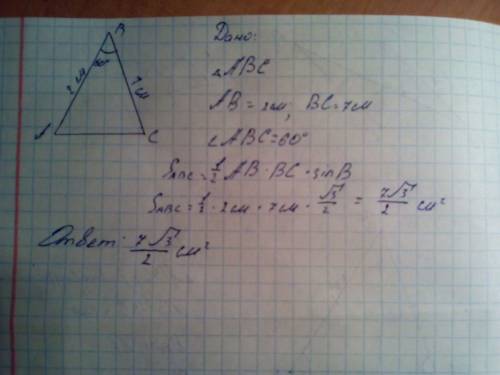 B
60°
2 см
7 см
A
C
Дано:
△ABC
AB = 2см, BC = 7см
∠ABC=60°
SABC = 1/2 AB · BC · sin B
SABC = 1/2 · 2см · 7см · √3/2 = 7√3/2 см²
Ответ: 7√3/2 см²